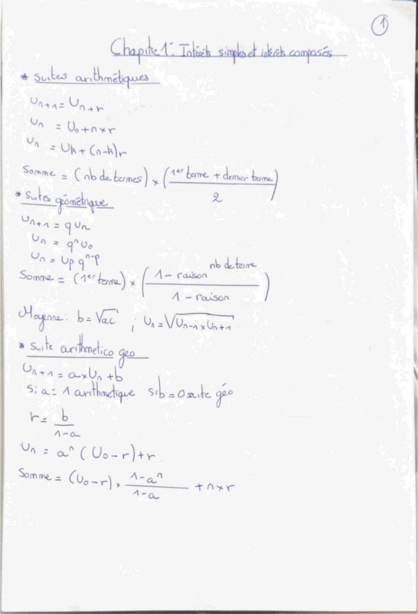 1
Chapitre 1: Intérêts simples et intérêts composés
* suites arithmétiques
Un+1 = Un+r
Un = U0+n×r
Un = Uk+(n-k)r
Somme = (nb de termes) × (1er terme + dernier terme / 2)
* suites géométrique
Un+1 = q Un
Un = qⁿ U0
Un = Up qⁿ⁻ᵖ
Somme = (1er terme) × (1 - raison^nb de terme / 1 - raison)
Moyenne. b = √ac ; Un = √Un-1 × Un+1
* suite arithmetico geo
Un+1 = a×Un+b
si a = 1 arithmetique si b = 0 suite géo
r = b / 1-a
Un = aⁿ (U0 - r) + r
Somme = (U0 - r) × 1-aⁿ / 1-a + n×r